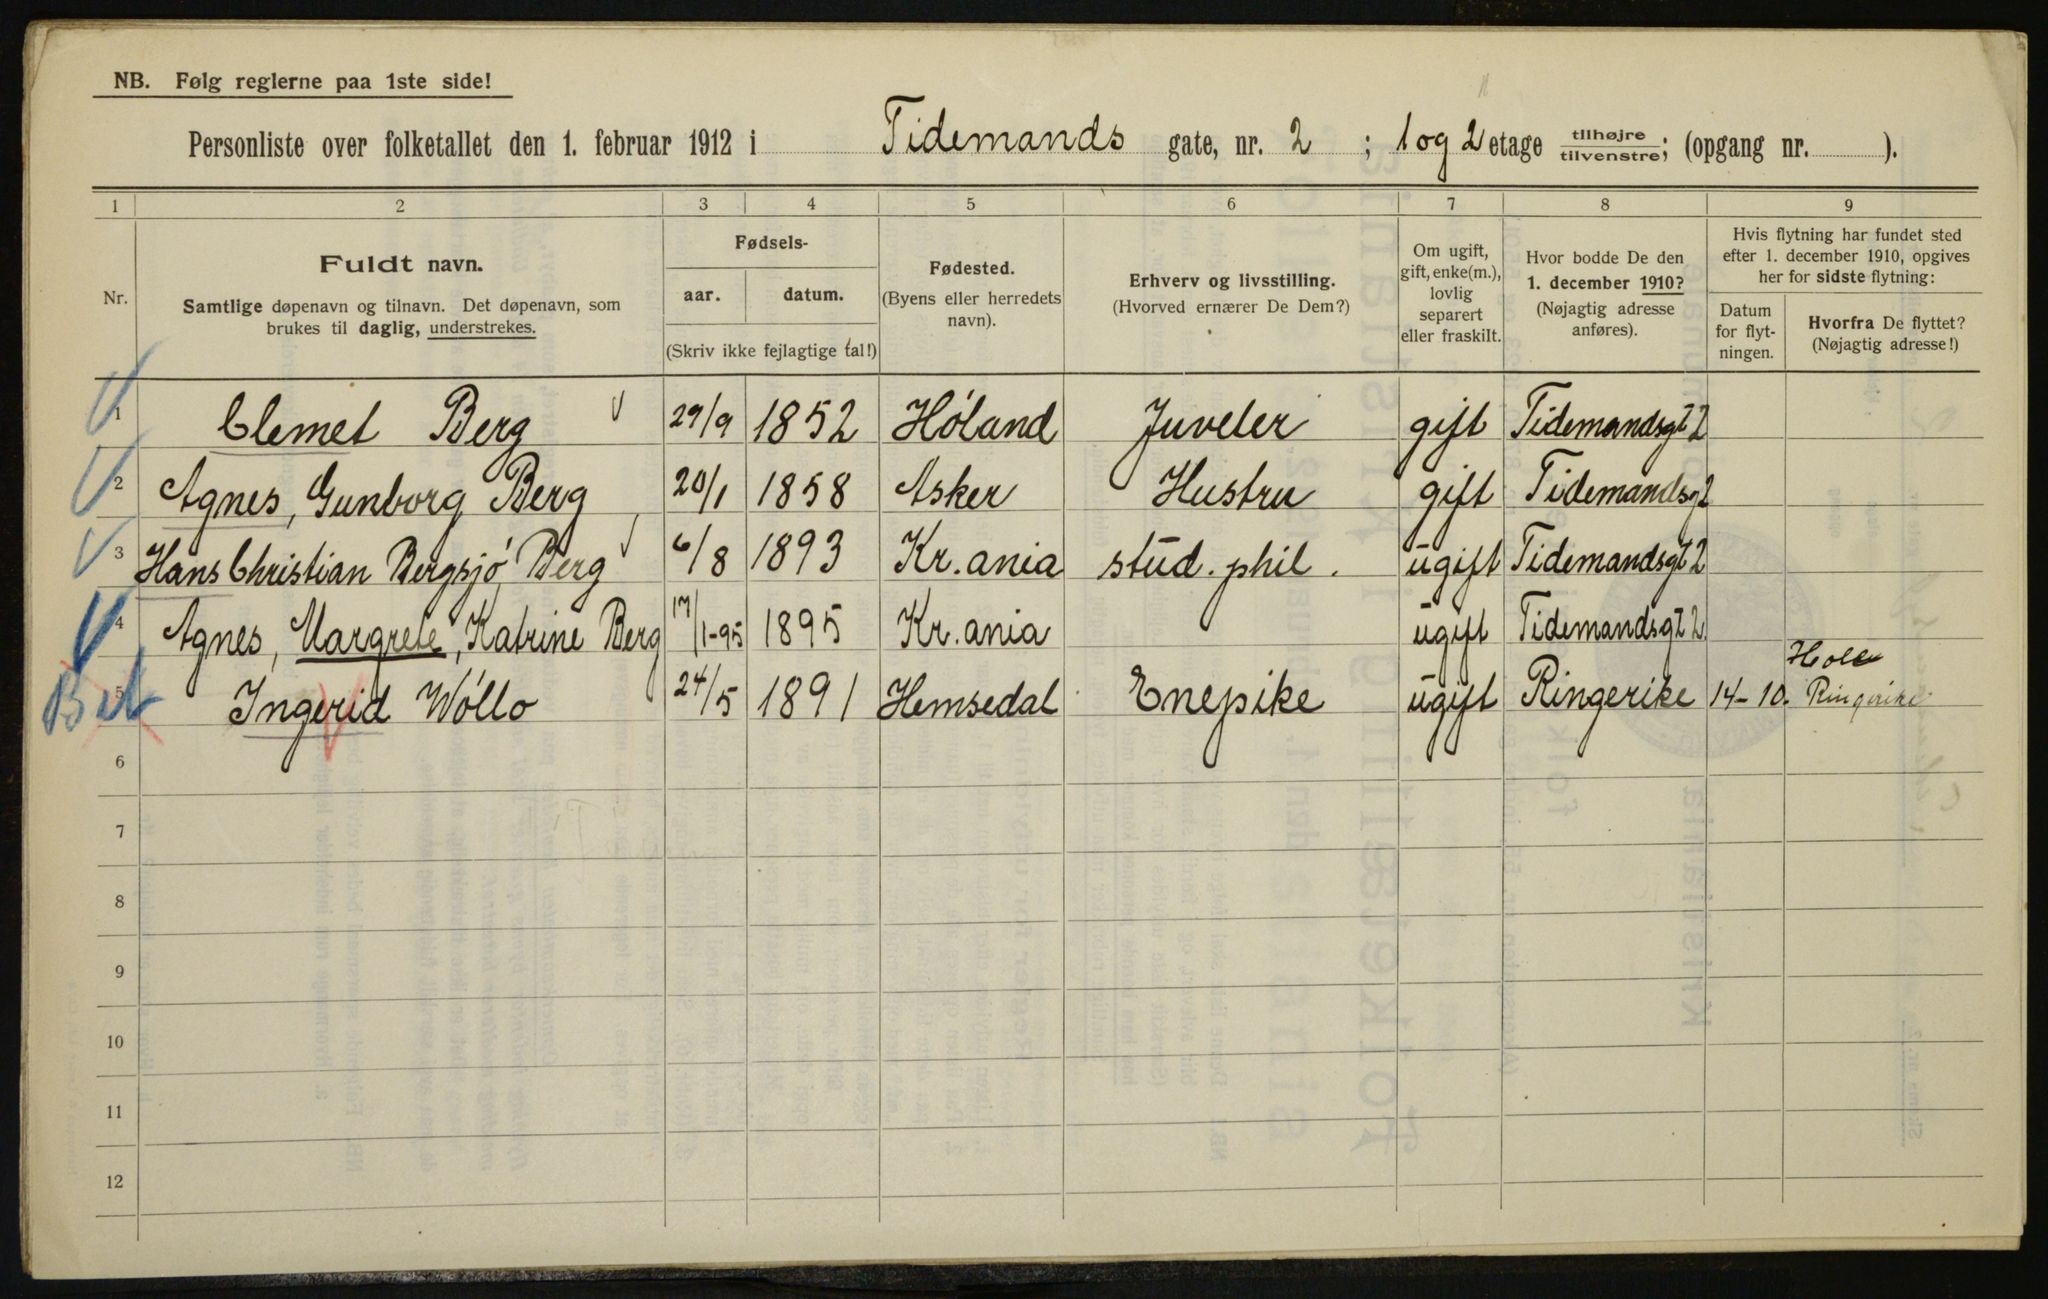 NB. Følg reglerne paa 1ste side!
Personliste over folketallet den 1. februar 1912 i Tidemands gate, nr. 2 ; 1 og 2 etage tilhøjre/tilvenstre; (opgang nr. ).
1 2 3 4 5 6 7 8 9
Nr.
Fuldt navn.
Samtlige døpenavn og tilnavn. Det døpenavn, som
brukes til daglig, understrekes.
Fødsels-
aar. datum.
(Skriv ikke fejlagtige tal!)
Fødested.
(Byens eller herredets
navn).
Erhverv og livsstilling.
(Hvorved ernærer De Dem?)
Om ugift,
gift, enke(m.),
lovlig
separert
eller fraskilt.
Hvor bodde De den
1. december 1910?
(Nøjagtig adresse
anføres).
Hvis flytning har fundet sted
efter 1. december 1910, opgives
her for sidste flytning:
Datum
for flyt-
ningen.
Hvorfra De flyttet?
(Nøjagtig adresse!)
1 Clemet Berg 29/9 1852 Høland Juveler gift Tidemandsgt 2
2 Agnes, Gunborg Berg 20/1 1858 Asker Hustru gift Tidemandsg 2
3 Hans Christian Bergsjø Berg 6/8 1893 Kr.ania stud. phil. ugift Tidemandsgt 2
4 Agnes, Margrete, Katrine Berg 17/1-95 1895 Kr.ania ugift Tidemandsgt 2.
Hole
5 Ingerid Wöllo 24/5 1891 Hemsedal Enepike ugift Ringerike 14-10. Ringerike
6
7
8
9
10
11
12